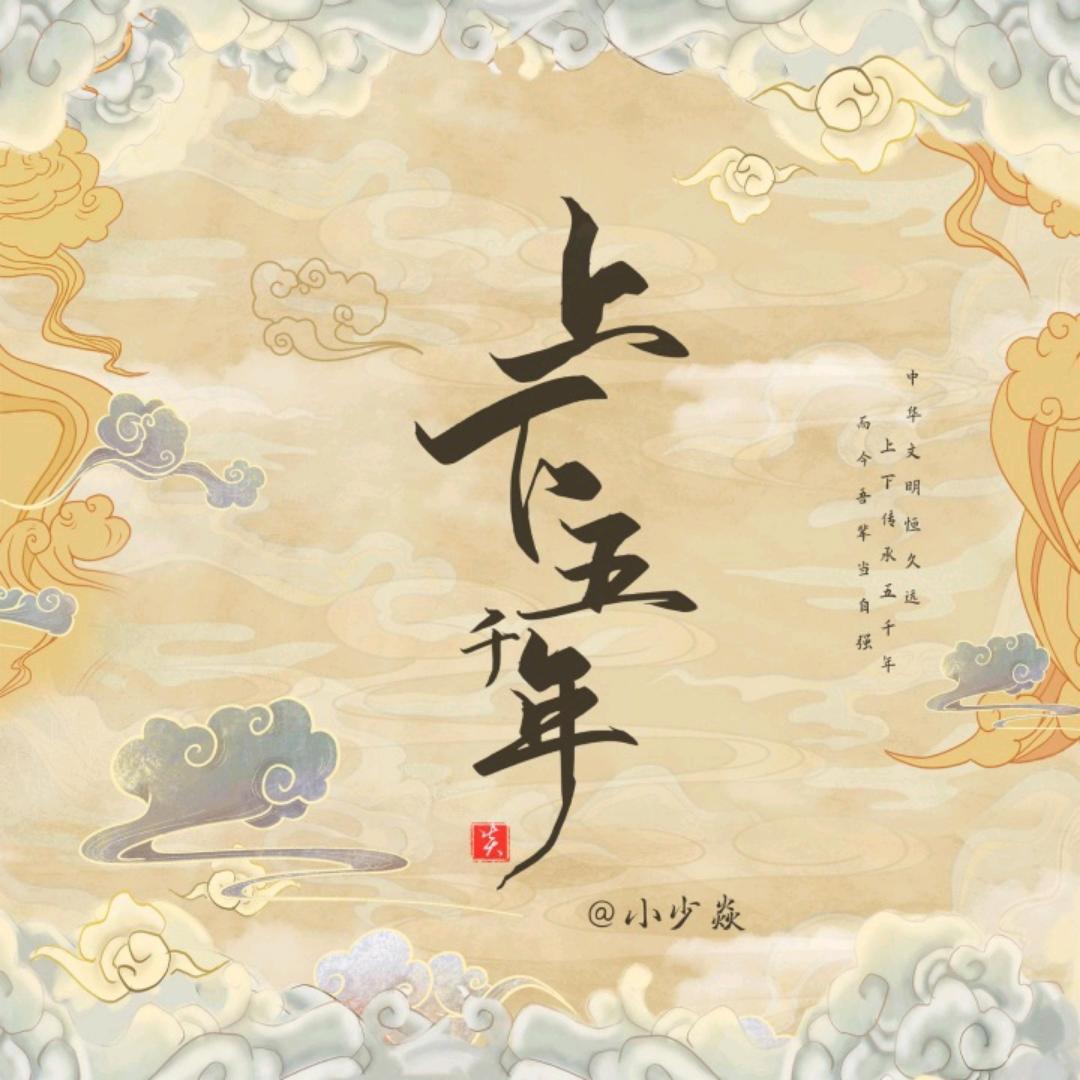 上下五千年
中华文明恒久远
上下传承五千年
而今吾辈当自强
炎
@小少焱